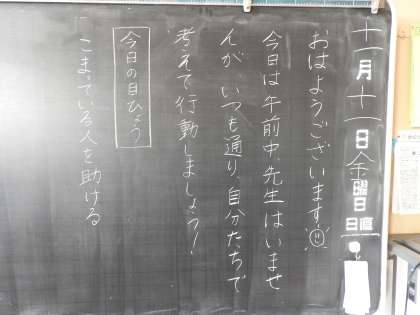 十一月十一日金曜日
日直
おはようございます
今日は午前中、先生はいませ
んが、いつも通り、自分たちで
考えて行動しましょう!
今日の目ひょう
こまっている人を助ける